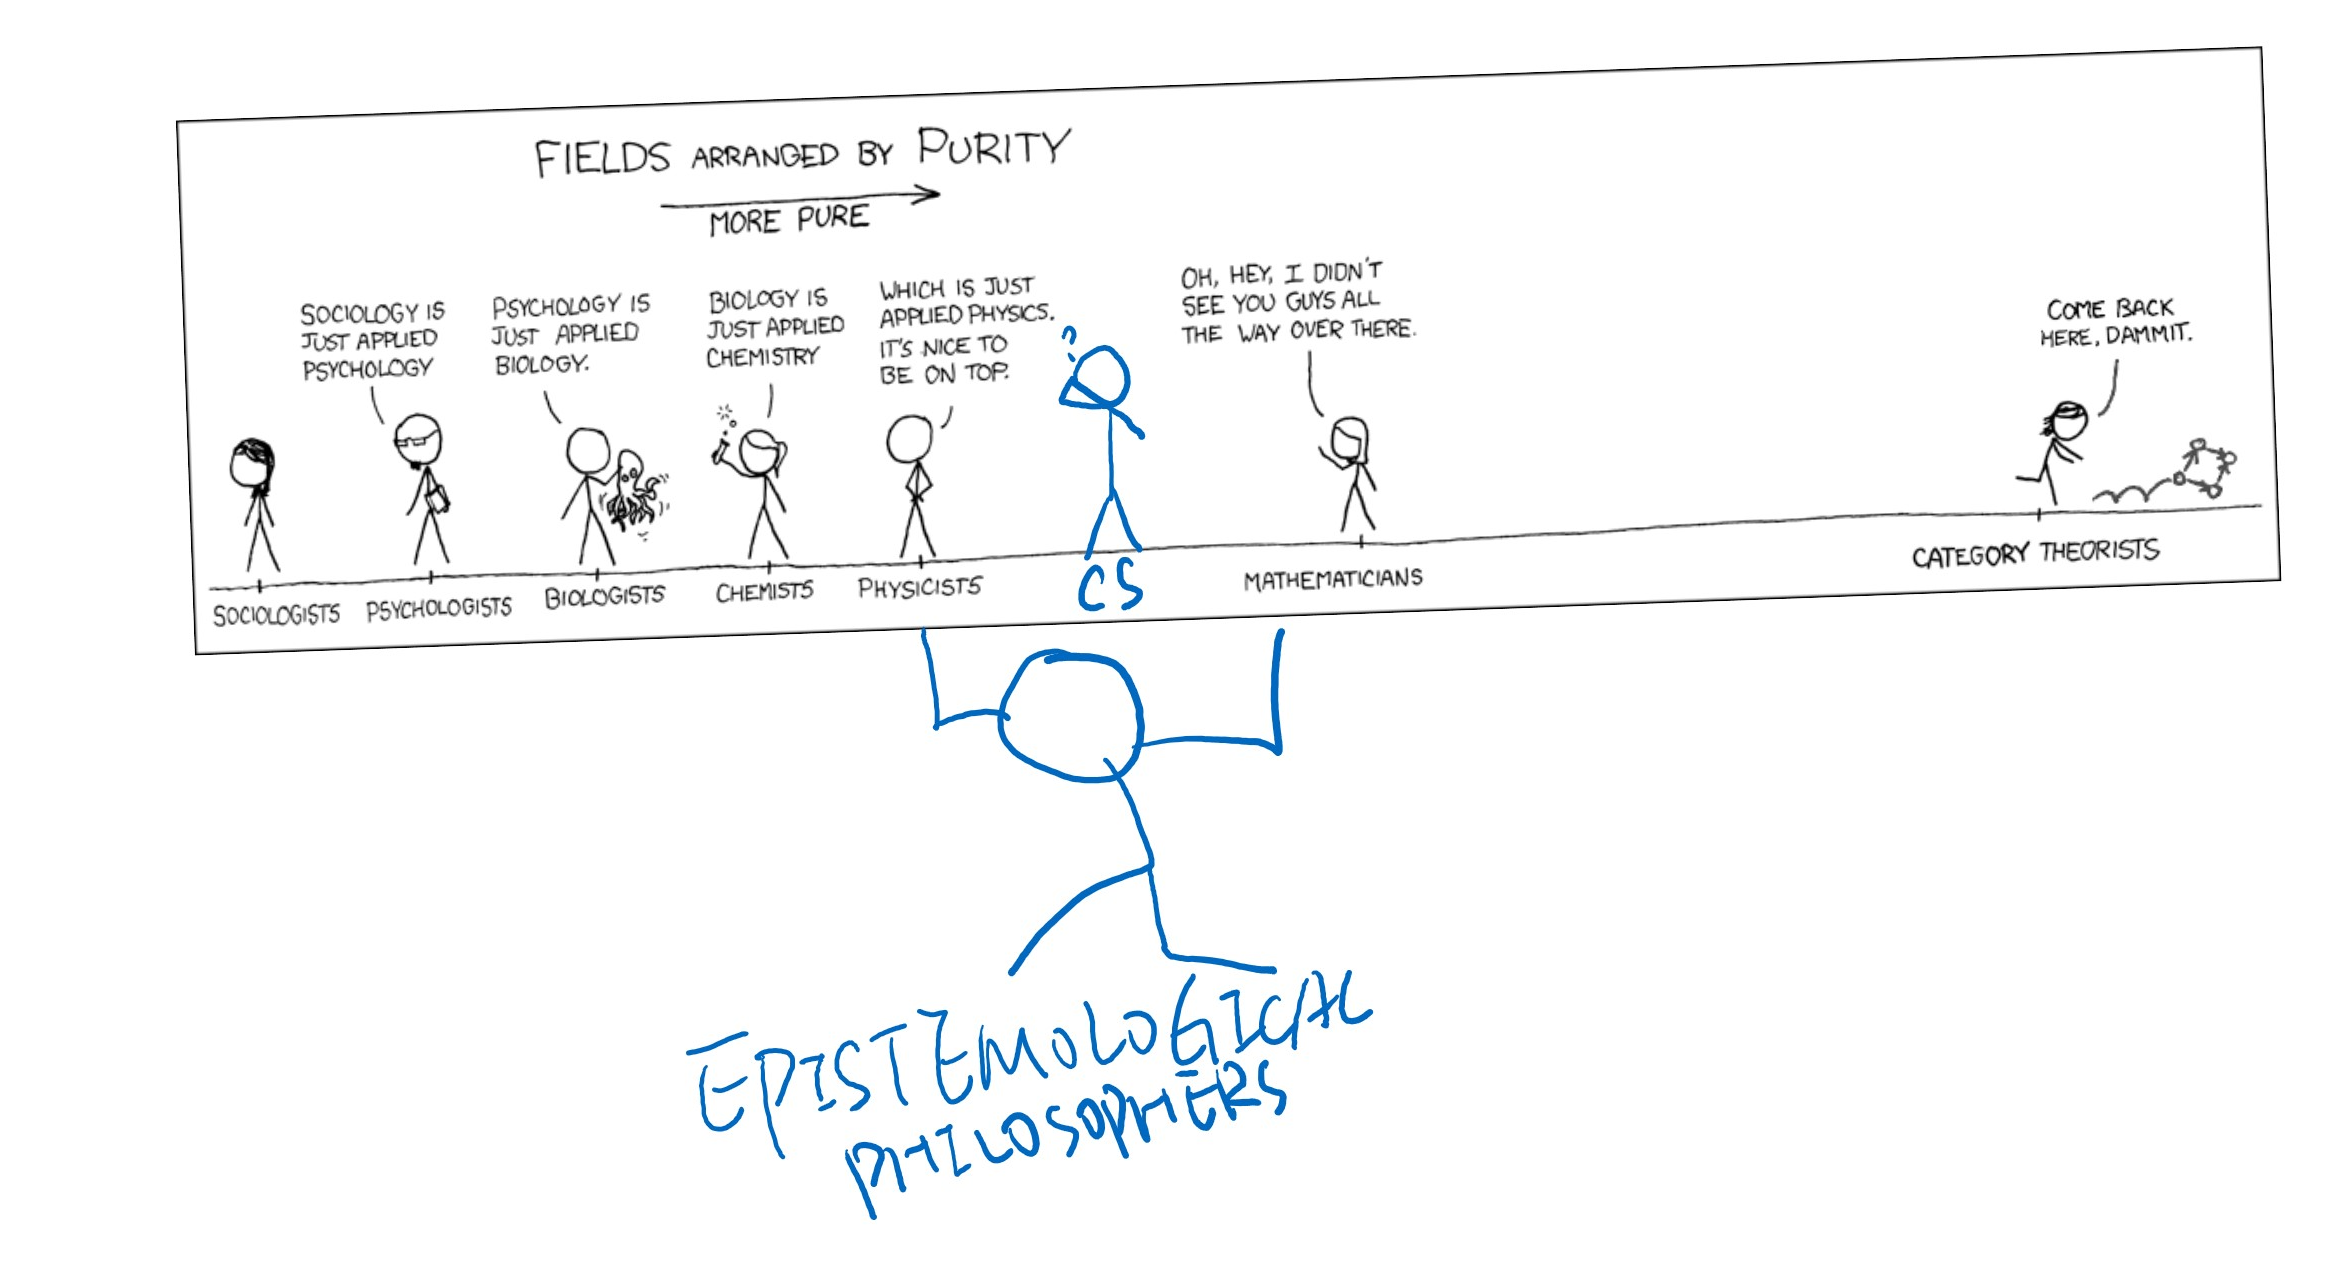 FIELDS ARRANGED BY PURITY
MORE PURE
SOCIOLOGY IS
JUST APPLIED
PSYCHOLOGY
PSYCHOLOGY IS
JUST APPLIED
BIOLOGY.
BIOLOGY IS
JUST APPLIED
CHEMISTRY
WHICH IS JUST
APPLIED PHYSICS.
IT'S NICE TO
BE ON TOP.
?
OH, HEY, I DIDN'T
SEE YOU GUYS ALL
THE WAY OVER THERE.
COME BACK
HERE, DAMMIT.
SOCIOLOGISTS
PSYCHOLOGISTS
BIOLOGISTS
CHEMISTS
PHYSICISTS
CS
MATHEMATICIANS
CATEGORY THEORISTS
EPISTEMOLOGICAL
PHILOSOPHERS